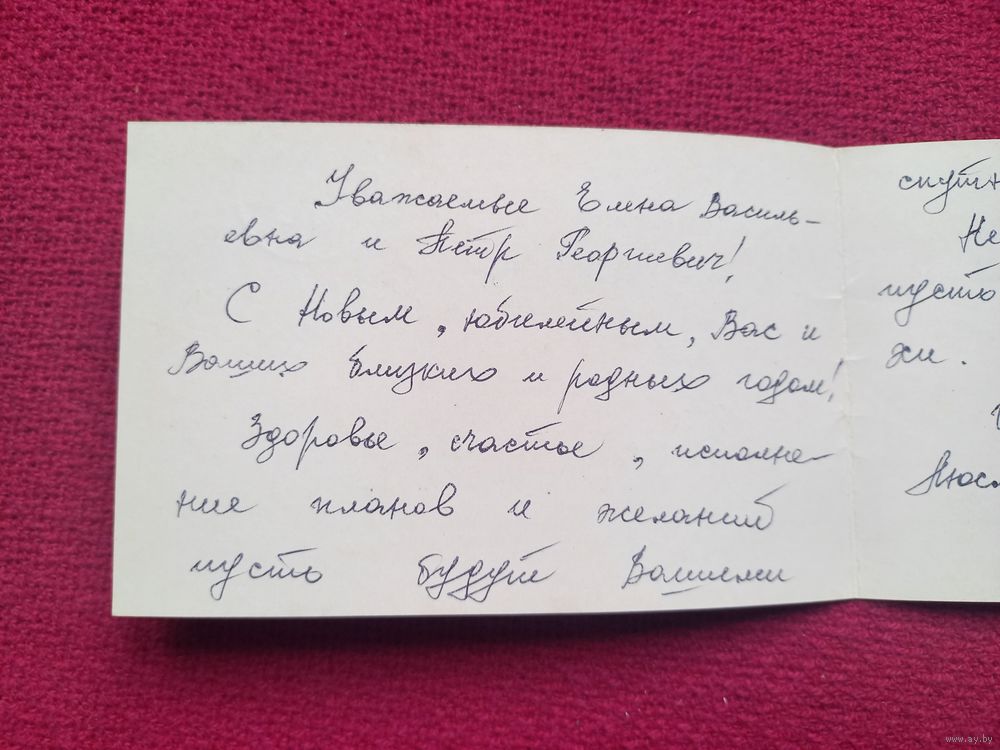 Уважаемые Елена Василь-
евна и Пётр Георгиевич!
С Новым, юбилейным, Вас и
Ваших близких и родных годом!
Здоровье, счастье, исполне-
ние планов и желаний
пусть будут Вашими
спутн
Не
пусто
жи.
Люс
www.ay.by